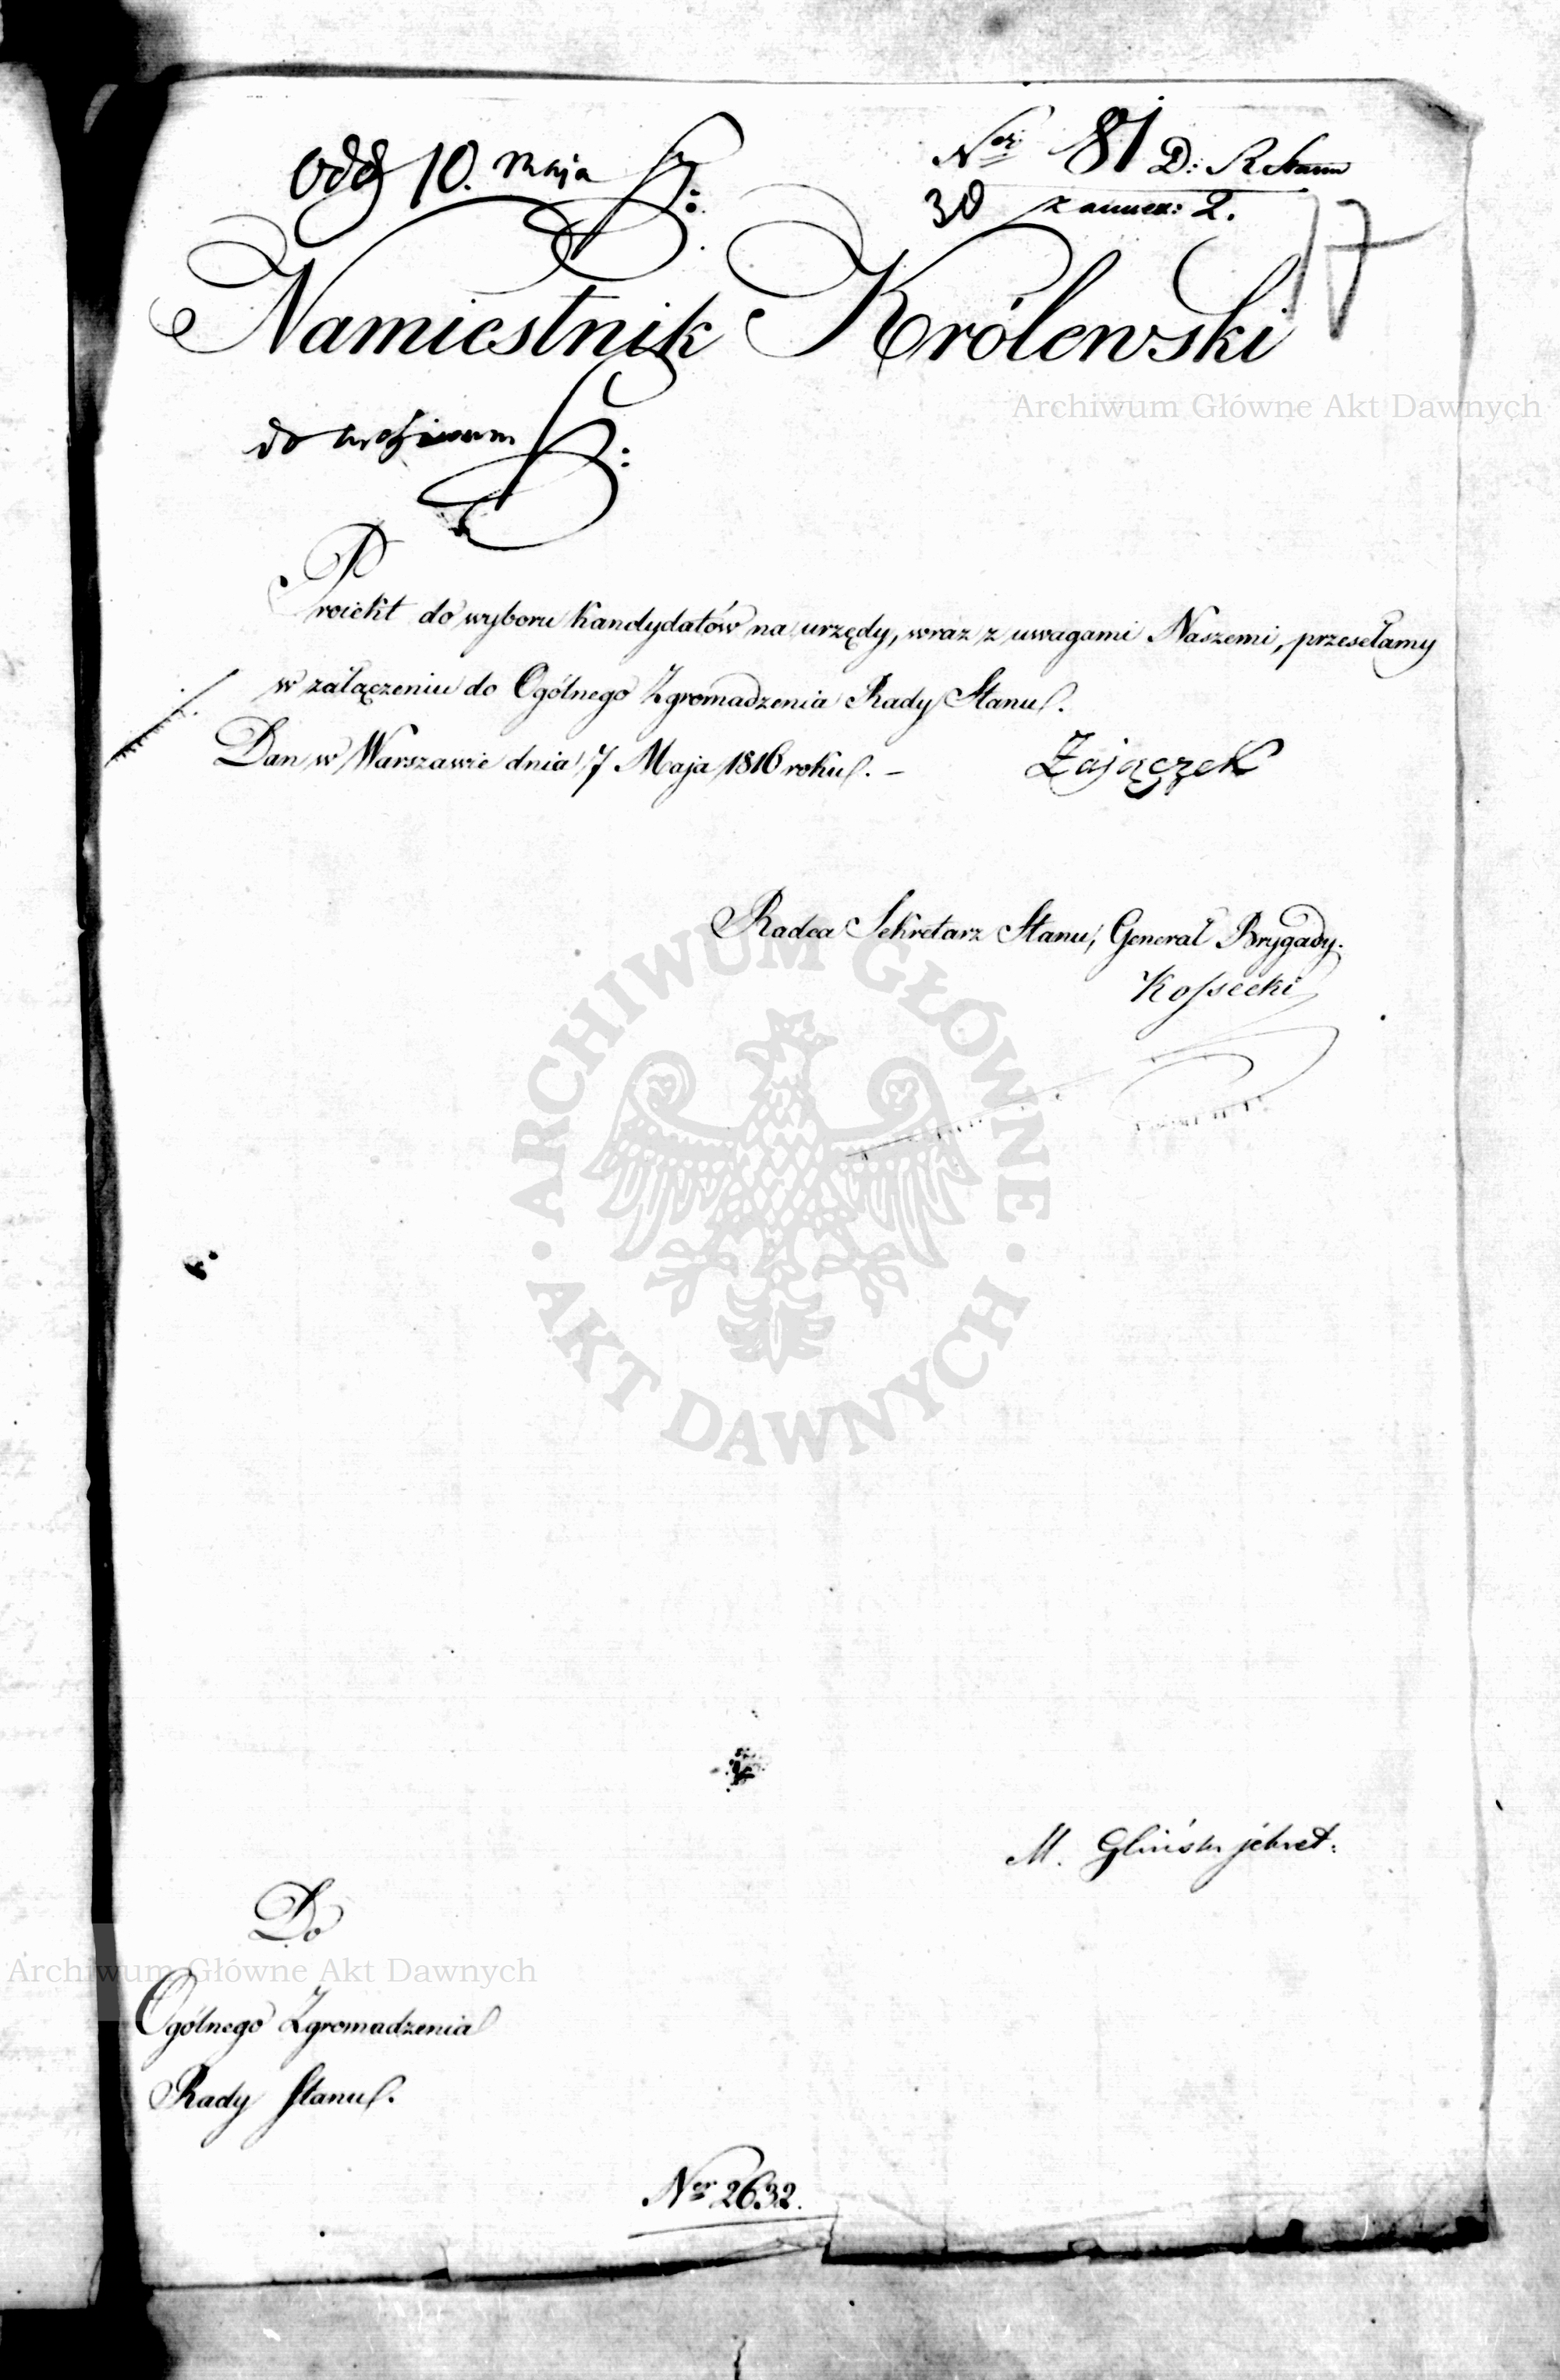 odd 10. Maja
Nor 81 D: R Stanu
30 z annex: 2.
17
Namiestnik Królewski
Archiwum Główne Akt Dawnych
do archiwum
Proiekt do wyboru Kandydatów na urzędy, wraz z uwagami Naszemi, przesełamy
w załączeniu do Ogólnego Zgromadzenia Rady Stanu.
Dan w Warszawie dnia 7 Maja 1816 roku. –
Zajączek
Radca Sekretarz Stanu, Generał Brygady.
Kossecki
ARCHIWUM GŁÓWNE · AKT DAWNYCH ·
M. Gliński sekret:
Do
Archiwum Główne Akt Dawnych
Ogólnego Zgromadzenia
Rady Stanu.
Nor 2632.